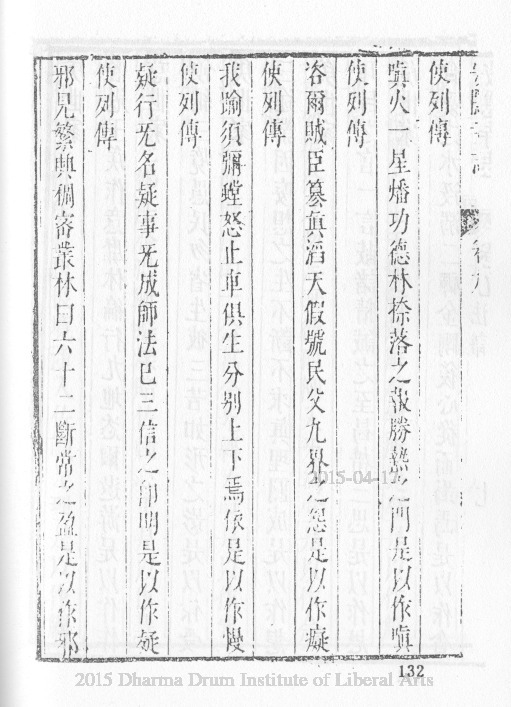 使列傳
嗔火一星燔功德林捺落之報勝熱之門是以作嗔
使列傳
咨爾賊臣篡眞滔天假號民父九界之怨是以作癡
使列傳
我踰須彌螳怒止車俱生分别上下焉依是以作慢
使列傳
疑行无名疑事无成師法巳三信之卽明是以作疑
使列傳
邪見繁興稠審叢林曰六十二斷常之盈是以作邪
132
2015-04-17
2015 Dharma Drum Institute of Liberal Arts